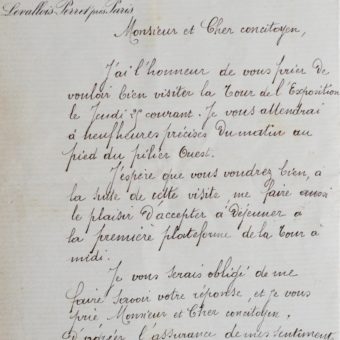 Levallois-Perret près Paris
Monsieur et Cher concitoyen,
J'ai l'honneur de vous prier de
vouloir bien visiter la Tour de l'Exposition
le Jeudi courant. Je vous attendrai
à neuf heures précises du matin au
pied du pilier Ouest.
J'espère que vous voudrez bien, à
la suite de cette visite me faire aussi
le plaisir d'accepter à déjeuner à
la première plateforme de la Tour à
midi.
Je vous serais obligé de me
faire savoir votre réponse, et je vous
prie Monsieur et Cher concitoyen,
d'agréer l'assurance de mes sentiment